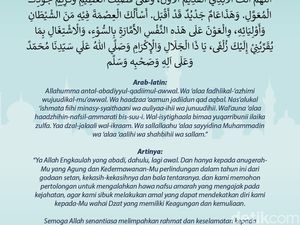 اللَّهُمَّ أَنْتَ الْأَبَدِيُّ الْقَدِيمُ الْأَوَّلُ، وَعَلَى فَضْلِكَ الْعَظِيمِ وَكَرِيمِ جُودِكَ
الْمُعَوَّلُ، وَهَذَا عَامٌ جَدِيدٌ قَدْ أَقْبَلَ، أَسْأَلُكَ الْعِصْمَةَ فِيهِ مِنَ الشَّيْطَانِ
وَأَوْلِيَائِهِ، وَالْعَوْنَ عَلَى هَذِهِ النَّفْسِ الْأَمَّارَةِ بِالسُّوءِ، وَالْاِشْتِغَالَ بِمَا
يُقَرِّبُنِي إِلَيْكَ زُلْفَى، يَا ذَا الْجَلَالِ وَالْإِكْرَامِ وَصَلَّى اللهُ عَلَى سَيِّدِنَا مُحَمَّدٍ
وَعَلَى آلِهِ وَصَحْبِهِ وَسَلَّمَ
Arab-latin:
Allahumma antal-abadiyyul-qadiimul-awwal. Wa 'alaa fadhlikal-'azhimi
wujuudikal-mu'awwal. Wa haadzaa 'aamun jadiidun qad aqbal. Nas'alukal
'ishmata fiihi minasy-syaithaani wa auliyaa-ihi wa junuudihi. Wal'auna 'alaa
haadzihin-nafsil-ammarati bis-suu-i. Wal-isytighaala bimaa yuqarribunii ilaika
zulfa. Yaa dzal-jalaali wal-ikraam. Wa sallallaahu 'alaa sayyidina Muhammadin
wa 'alaa 'aalihi wa shahbihi wa sallam."
Artinya:
"Ya Allah Engkaulah yang abadi, dahulu, lagi awal. Dan hanya kepada anugerah-
Mu yang Agung dan Kedermawanan-Mu perlindungan dalam tahun ini dari
godaan setan, kekasih-kekasihnya dan bala tentaranya. dan kami memohon
pertolongan untuk mengalahkan hawa nafsu amarah yang mengajak pada
kejahatan, agar kami sibuk melakukan amal yang dapat mendekatkan diri kami
kepada-Mu wahai Dzat yang memiliki Keagungan dan kemuliaan.
Semoga Allah senantiasa melimpahkan rahmat dan keselamatan kepada
detikcom